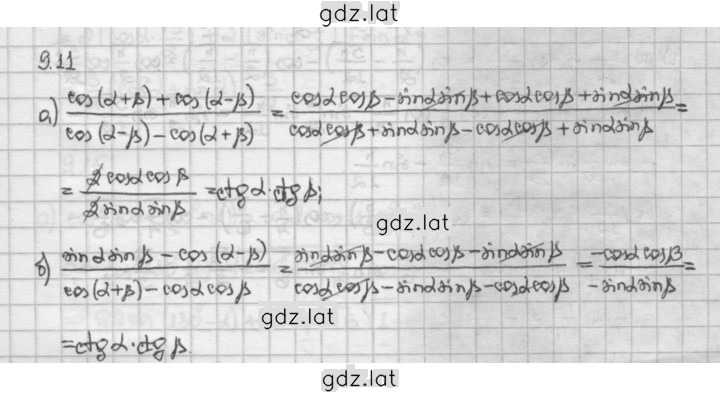 gdz.lat
9.11
а) (cos(α+β)+cos(α-β))/(cos(α-β)-cos(α+β)) = (cosαcosβ-sinαsinβ+cosαcosβ+sinαsinβ)/(cosαcosβ+sinαsinβ-cosαcosβ+sinαsinβ) =
= (2cosαcosβ)/(2sinαsinβ) = ctgα·ctgβ;
gdz.lat
б) (sinαsinβ-cos(α-β))/(cos(α+β)-cosαcosβ) = (sinαsinβ-cosαcosβ-sinαsinβ)/(cosαcosβ-sinαsinβ-cosαcosβ) = (-cosαcosβ)/(-sinαsinβ) =
gdz.lat
= ctgα·ctgβ.
gdz.lat